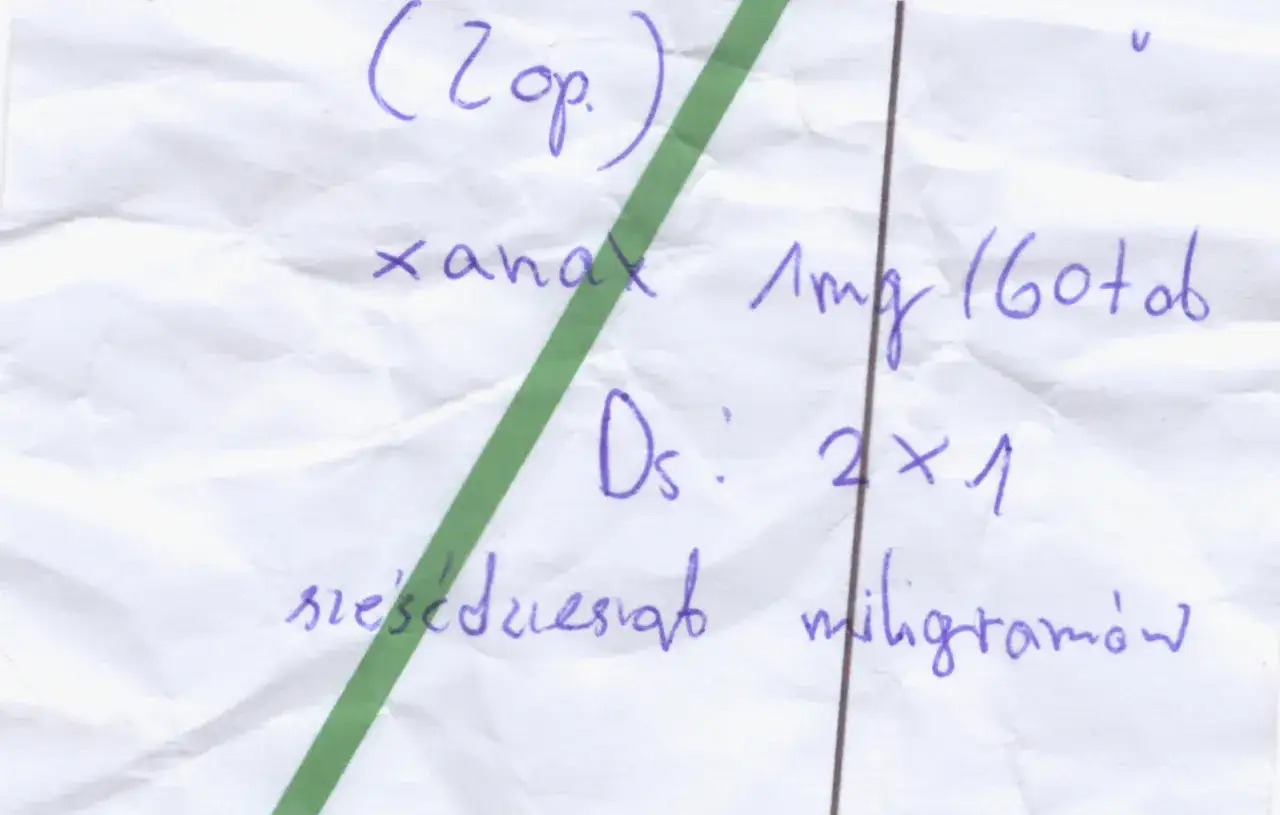 (2 op.)
xanax 1mg /60tab
Ds: 2 x 1
sześćdziesiąt miligramów